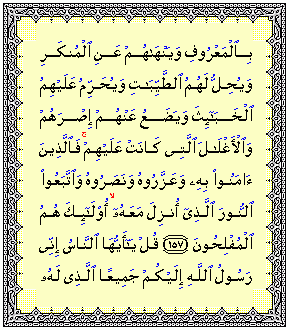 بِٱلْمَعْرُوفِ وَيَنْهَىٰهُمْ عَنِ ٱلْمُنكَرِ
وَيُحِلُّ لَهُمُ ٱلطَّيِّبَـٰتِ وَيُحَرِّمُ عَلَيْهِمُ
ٱلْخَبَـٰٓئِثَ وَيَضَعُ عَنْهُمْ إِصْرَهُمْ
وَٱلْأَغْلَـٰلَ ٱلَّتِى كَانَتْ عَلَيْهِمْ ۚ فَٱلَّذِينَ
ءَامَنُوا۟ بِهِۦ وَعَزَّرُوهُ وَنَصَرُوهُ وَٱتَّبَعُوا۟
ٱلنُّورَ ٱلَّذِىٓ أُنزِلَ مَعَهُۥٓ ۙ أُو۟لَـٰٓئِكَ هُمُ
ٱلْمُفْلِحُونَ ﴿١٥٧﴾ قُلْ يَـٰٓأَيُّهَا ٱلنَّاسُ إِنِّى
رَسُولُ ٱللَّهِ إِلَيْكُمْ جَمِيعًا ٱلَّذِى لَهُۥ